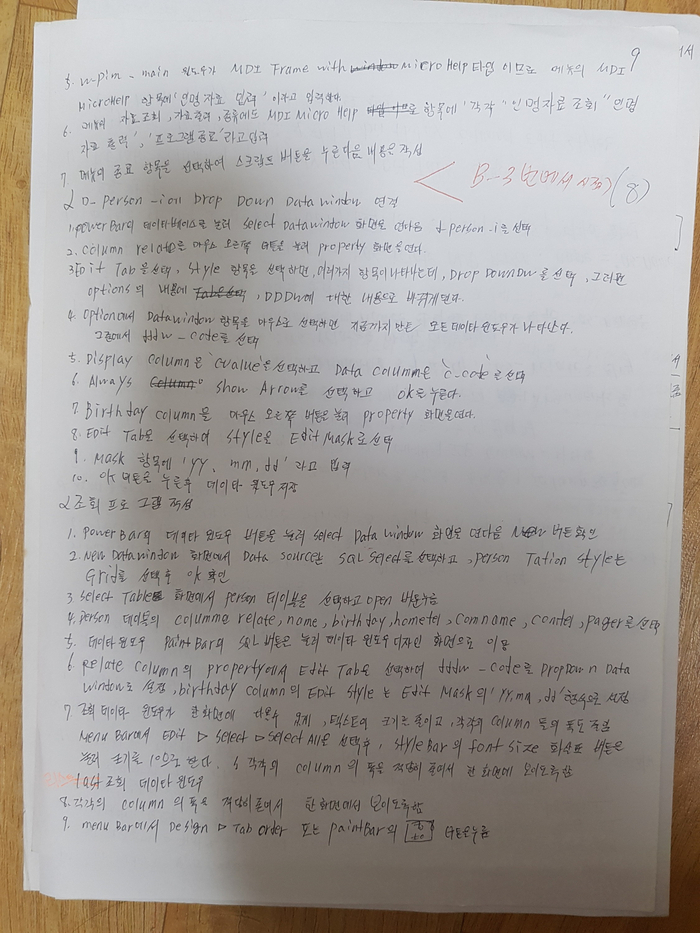 9
5. w-pim-main 윈도우가 MDI Frame with MicroHelp 타입 이므로 메뉴의 MDI
MicroHelp 항목에 '인명자료 입력' 이라고 입력한다.
6. 메뉴의 자료조회, 자료출력, 종료에도 MDI Micro Help 항목에 '각각 "인명자료 조회" "인명
자료 출력", '프로그램종료' 라고 입력
7 메뉴의 종료 항목을 선택하여 스크립트 버튼을 누른다음 내용을 작성
B-3번에서 시작 (8)
2 D-person-i의 Drop Down Data Window 연결
1. power Bar의 데이타베이스를 눌러 select Datawindow 화면을 연다음 d-person-i를 선택
2. column relate를 마우스 오른쪽 버튼을 눌러 property 화면을 연다.
3 Edit Tab을 선택, style 항목을 선택하면, 여러가지 항목이 나타나는데, Drop Down DW를 선택, 그러면
options의 내용에, DDDW에 대한 내용으로 바뀌게 된다.
4. Option에서 Data window 항목을 마우스로 선택하면 지금까지 만든 모든 데이타 윈도우가 나타난다.
그중에서 dddw-code를 선택
5. Display column은 'cvalue'를 선택하고 Data column은 'c-code'를 선택
6. Always show Arrow를 선택하고 ok를 누른다.
7. Birthday column을 마우스 오른쪽 버튼을 눌러 property 화면을 연다.
8. Edit Tab을 선택하여 style을 Edit Mask로 선택
9. Mask 항목에 'yy, mm, dd' 라고 입력
10. OK 버튼을 누른후 데이타 윈도우 저장
2 조회 프로그램 작성
1. power Bar의 데이타 윈도우 버튼을 눌러 select Data window 화면을 연다음 New 버튼확인
2. New Data window 화면에서 Data source는 SQL select를 선택하고, person Tation style는
Grid를 선택후 ok 확인
3 select Table 화면에서 person 테이블을 선택하고 open 버튼누름
4. person 테이블의 column relate, name, birthday, hometel, comname, comtel, pager를 선택
5. 데이타윈도우 Paint Bar의 SQL 버튼을 눌러 데이타 윈도우 디자인 화면으로 이동
6. Relate column의 property에서 Edit Tab을 선택하여 dddw-code를 Drop Down Data
window로 설정, birthday column의 Edit style는 Edit Mask의 'yy, mm, dd' 형식으로 설정
7. 조회 데이타 윈도우가 한화면에 나올수 있게, 텍스트의 크기를 줄이고, 각각의 column 들의 폭도 줄임
Menu Bar에서 Edit ▷ select ▷ select All을 선택후, style Bar의 font size 화살표 버튼은
눌러 크기를 10으로 한다. 각각의 column의 폭을 적당히 줄여서 한 화면에 보이도록함
조회 데이타 윈도우
8. 각각의 column의 폭을 적당히 줄여서 한화면에서 보이도록함
9. menu Bar에서 Design ▷ Tab order 또는 paint Bar의 버튼을누름